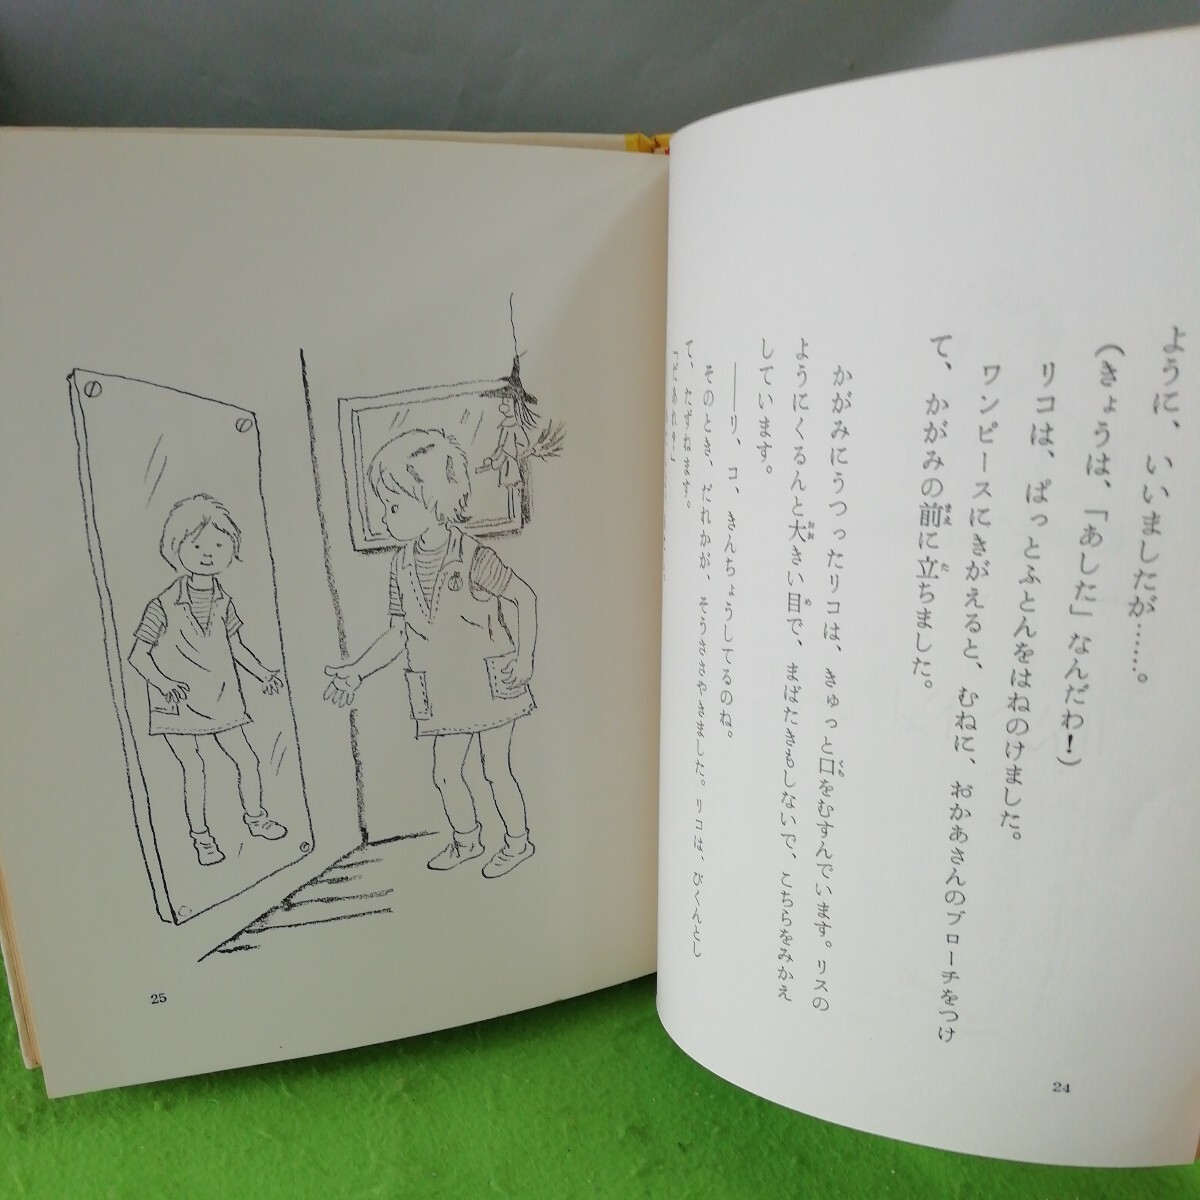 ように、いいましたが……。
(きょうは、「あした」なんだわ！)
リコは、ぱっとふとんをはねのけました。
ワンピースにきがえると、むねに、おかあさんのブローチをつけ
て、かがみの前に立ちました。
かがみにうつったリコは、きゅっと口をむすんでいます。リスの
ようにくるんと大きい目で、まばたきもしないで、こちらをみかえ
しています。
――リ、コ、きんちょうしてるのね。
そのとき、だれかが、そうささやきました。リコは、びくんとし
て、たずねます。
24
25